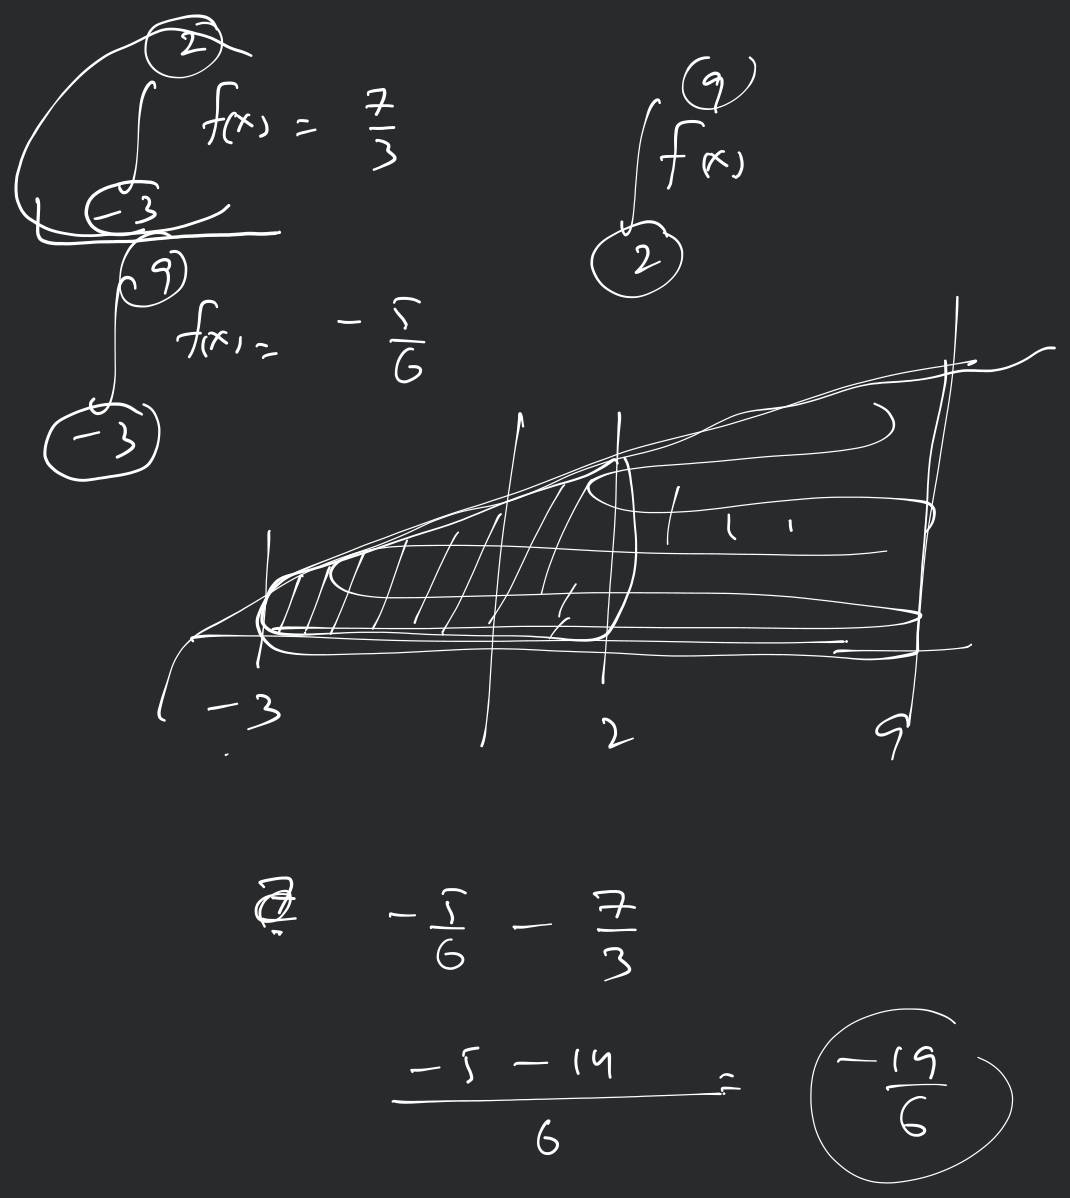 ∫_{-3}^{2} f(x) = 7/3
∫_{2}^{9} f(x)
∫_{-3}^{9} f(x) = - 5/6
-3 2 9
- 5/6 - 7/3
(-5 - 14)/6 = -19/6